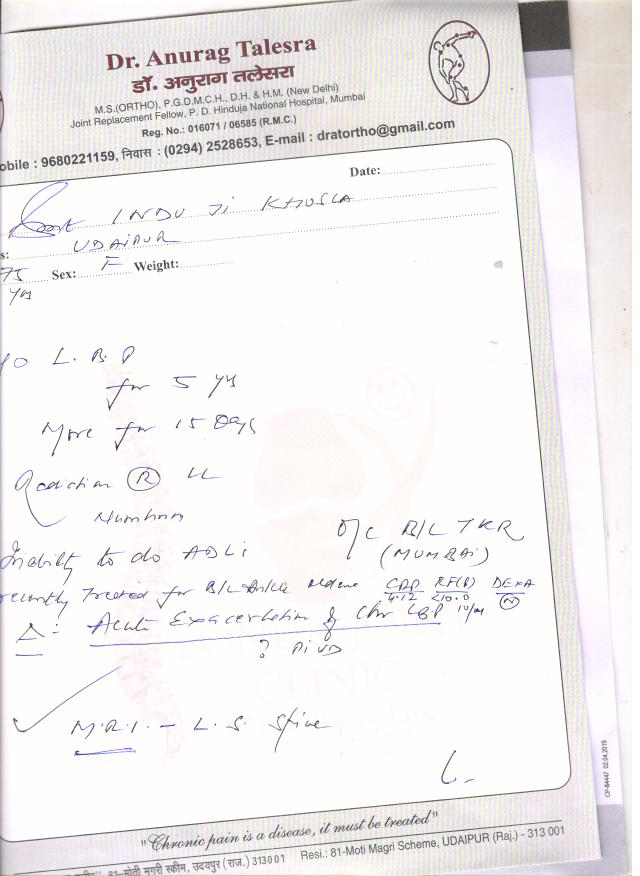 Dr. Anurag Talesra
डॉ. अनुराग तलेसरा
M.S.(ORTHO), P.G.D.M.C.H., D.H. & H.M. (New Delhi)
Joint Replacement Fellow, P. D. Hinduja National Hospital, Mumbai
Reg. No.: 016071 / 06585 (R.M.C.)
obile : 9680221159, निवास : (0294) 2528653, E-mail : dratortho@gmail.com
Date:
INDU Ji KHOSLA
s: UDAIPUR
75 Sex: F Weight:
Yrs
/O L.B.P
for 5 yrs
More for 15 Days
Radiation R LL
Numbness
Inability to do ADLs O/C B/L TKR
(MUMBAI)
recently treated for B/L Ankle edema CRP RF(P) DEXA
4.12 <10.0 N
Δ: Acute Exacerbation of Chr LBP
? PIVD
CLINIC
M.R.I. - L.S. Spine
"Chronic pain is a disease, it must be treated"
81-मोती मगरी स्कीम, उदयपुर (राज.) 313001 Resi.: 81-Moti Magri Scheme, UDAIPUR (Raj.) - 313 001
CP-84447 02.04.2019